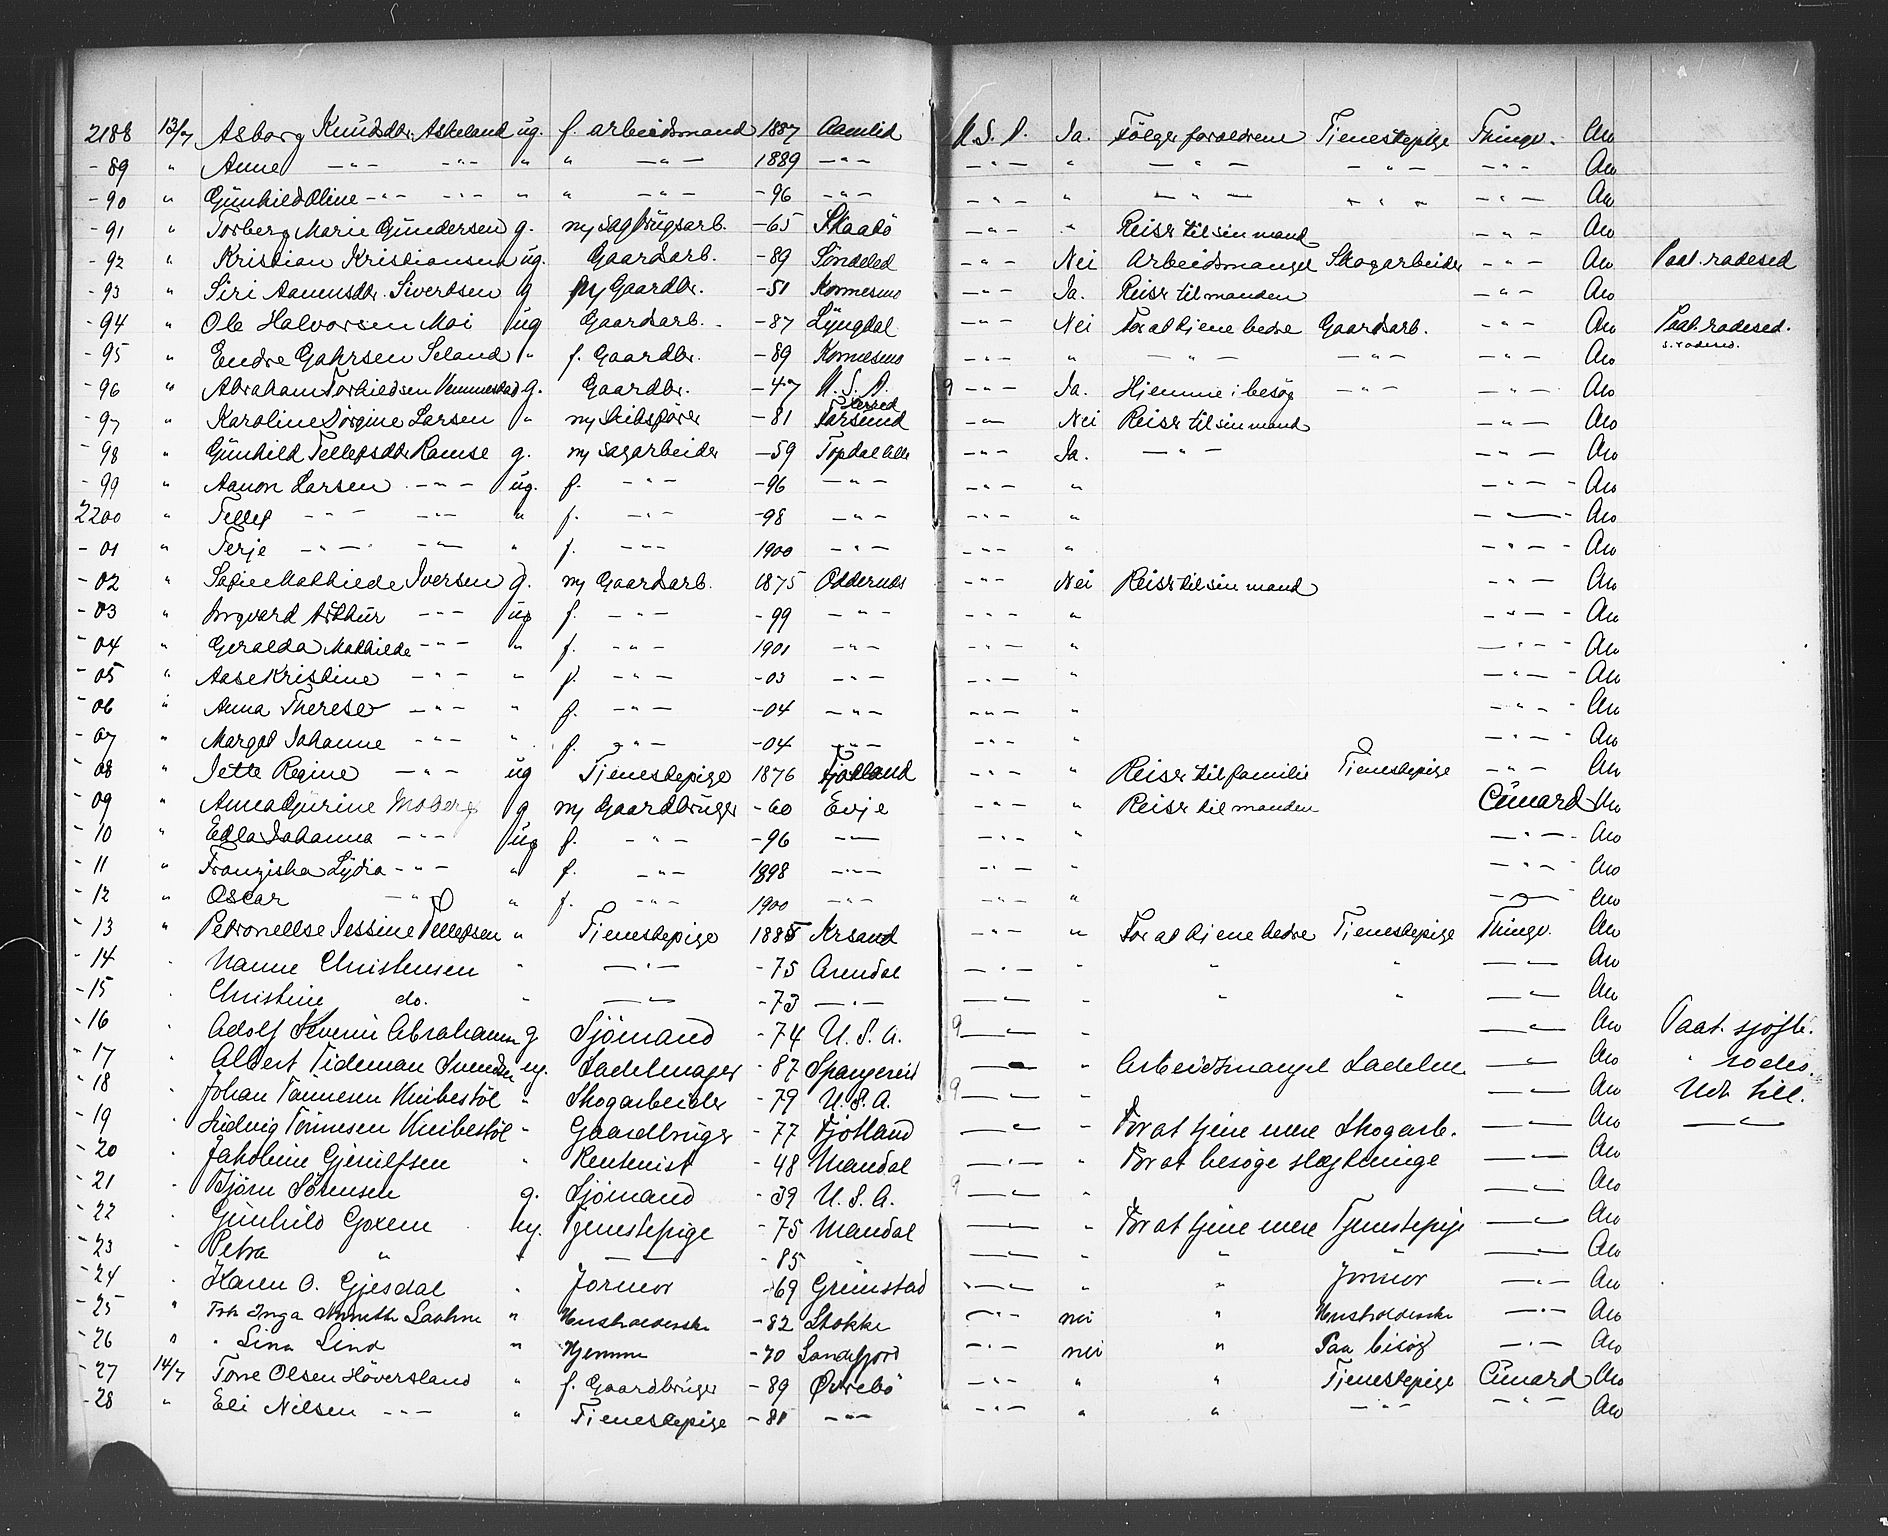 2188 13/7 Asborg Knudsdtr. Askeland ug. f. arbeidsmand 1887 Aamlid U.S.A. Ja. Følger forældrene Tjenestepige Thingv. Am
- 89 " Anne -"- -"- " " -"- 1889 -"- -"- " -"- -"- -"- Am
- 90 " Gunhild Oline -"- -"- " " -"- -96 -"- -"- " -"- " " " -"- Am
- 91 " Torberg Marie Gundersen g. m/ Sagbrugsarb. -65 Skaabö -"- " Reiser til sin mand -"- Am
- 92 " Kristian Kristiansen ug. Gaardarb. -89 Söndeled -"- Nei Arbeidsmangel Skogarbeider -"- Am Paat. radesed
- 93 " Siri Aanensdtr. Sivertsen g m/ Gaardbr. -51 -"- Ja. Reiser til manden -"- Am
- 94 " Ole Halvorsen Moi ug Gaardsarb. -87 Lyngdal -"- Nei For at tjene bedre Gaardsarb. -"- Am Paat. radesed.
- 95 " Endre Gahrsen Seland " f. Gaardbr. -89 -"- " -"- -"- -"- Am s. radesed.
- 96 " Abraham Torkildsen g. Gaardbr. -47 U.S.A. 9 -"- Ja. Hjemme i besög -"- -"- Am
- 97 " Karoline Jörgine Larsen " m/ -81 Farsund -"- Nei Reiser til sin mand -"- Am
- 98 " Gunhild Tellefsdtr Ramse g. m/ Sagarbeider -59 Topdal -"- Ja. -"- -"- Am
- 99 " Aanon Larsen -"- ug. f. -"- -96 -"- -"- " -"- Am
2200 " Tellef -"- -"- " f. -"- -98 -"- -"- " -"- Am
- 01 " Terje -"- -"- " f. -"- 1900 -"- -"- " -"- Am
- 02 " Sofie Mathilde Iversen g. m/ Gaardsarb. 1875 Oddernes -"- Nei Reiser til sin mand -"- Am
- 03 " Ingvard Arthur -"- ug f. -"- -99 -"- -"- " -"- Am
- 04 " Geralda Mathilde -"- " f. -"- 1901 -"- -"- " -"- Am
- 05 " Aase Kristine -"- " f. -"- -03 -"- -"- " -"- Am
- 06 " Anna Therese -"- " f. -"- -04 -"- -"- " -"- Am
- 07 " Margot Johanne -"- " f. -"- -04 -"- -"- " -"- Am
- 08 " Jette Regine -"- ug Tjenestepige 1876 Fjotland -"- " Reiser til familie Tjenestepige -"- Am
- 09 " Anna Gurine Moberg g m/ Gaardbruger -60 Evje -"- " Reiser til manden Cunard Am
- 10 " Edla Johanna -"- ug f. -"- -96 -"- -"- " -"- Am
- 11 " Franziska Lydia -"- " f. -"- 1898 -"- -"- " -"- Am
- 12 " Oscar -"- " f. -"- 1900 -"- -"- " -"- Am
- 13 " Petronelle Jessine Tellefsen " Tjenestepige 1885 Krsand -"- " For at tjene bedre Tjenestepige Thingv. Am
- 14 " Nanne Christensen " -"- -75 Arendal -"- " " " -"- Am
- 15 " Christine do. " -"- -73 -"- -"- " " " -"- Am
- 16 " Adolf Severin Abrahamsen g Sjömand -74 U.S.A. 9 -"- -"- Am Paat. sjöfb.
- 17 " Albert Tideman Svendsen ug. Sadelmager -87 Spangereid -"- Arbeidsmangel Sadelm. -"- Am " rodes.
- 18 " Johan Tönnesen Knibestöl " Skogarbeider -79 U.S.A. 9 -"- " -"- Am Udr. till.
- 19 " Ludvig Tönnesen Knibestöl " Gaardbruger -77 Fjotland -"- " For at tjene mere Skogarb. -"- Am -"-
- 20 " Jakobine Gjerulfsen " Rentenist -48 Mandal -"- " For at besöge slægtninge -"- Am
- 21 " Björn Sörensen g. Sjömand -39 U.S.A. 9 -"- -"- Am
- 22 " Gunhild Goxem ug. Tjenestepige -75 Mandal -"- " For at tjene mere Tjenestepige -"- Am
- 23 " Petra " " -"- -85 -"- " " " -"- Am
- 24 " Karen O. Gjesdal " Jormor -69 Grimstad -"- " " Jormor -"- Am
- 25 " Frk Inga " Husholderske -82 Stokke -"- nei " Husholderske -"- Am
- 26 " " Lina Lind " Hjemme -70 Sandefjord -"- nei " Paa besög -"- Am
- 27 14/7 Tone Olsen Höversland " f. Gaardbruger -89 Øvrebö -"- " " Tjenestepige Cunard Am
- 28 " Eli Nilsen -"- " Tjenestepige -81 -"- -"- " " -"- -"- Am